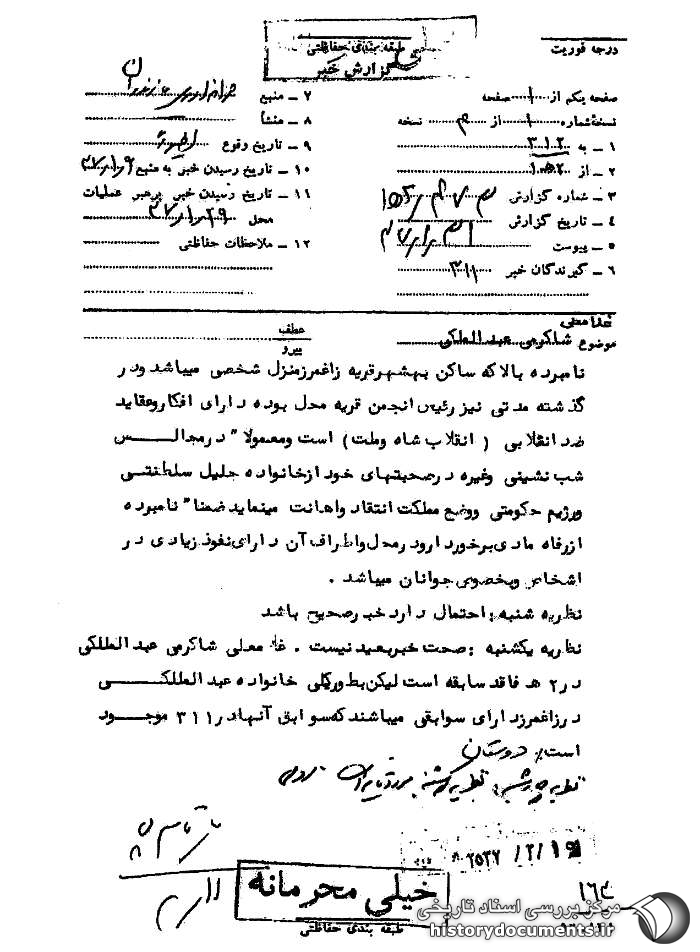 درجه فوریت
طبقه بندی حفاظتی
گزارش خبر
صفحه یکم از ۱ صفحه
نسخه شماره ۱ از نسخه
۱ ــ به ۳۱۲
۲ ــ از
۳ ــ شماره گزارش
۴ ــ تاریخ گزارش
۵ ــ پیوست
۶ ــ گیرندگان خبر ۳۱۱
۷ ــ منبع
۸ ــ منشأ
۹ ــ تاریخ وقوع
۱۰ ــ تاریخ رسیدن خبر به منبع
۱۱ ــ تاریخ رسیدن خبر برهبر عملیات
محل
۱۲ ــ ملاحظات حفاظتی
موضوع شاکرمی عبدالملکی
عطف
پیرو
نامبرده بالا که ساکن بهشهر قریه زاغمرز منزل شخصی میباشد ودر
گذشته مدتی نیز رئیس انجمن قریه محل بوده دارای افکار وعقاید
ضد انقلابی (انقلاب شاه وملت) است ومعمولا" در مجالس
شب نشینی وغیره در صحبتهای خود از خانواده جلیل سلطنتی
ورژیم حکومتی ووضع مملکت انتقاد واهانت مینماید ضمنا" نامبرده
از رفاه مادی برخوردار ودر محل واطراف آن دارای نفوذ زیادی در
اشخاص وبخصوص جوانان میباشد .
نظریه شنبه : احتمال دارد خبر صحیح باشد
نظریه یکشنبه : صحت خبر بعید نیست . غلامعلی شاکرمی عبدالملکی
در ۲ هـ فاقد سابقه است لیکن بطورکلی خانواده عبدالملکی
در زاغمرز دارای سوابقی میباشند که سوابق آنها در ۳۱۱ موجود
است . دوستان
۲۵۳۷ /۲/۱۹
خیلی محرمانه
طبقه بندی حفاظتی
مرکز بررسی اسناد تاریخی
historydocuments.ir